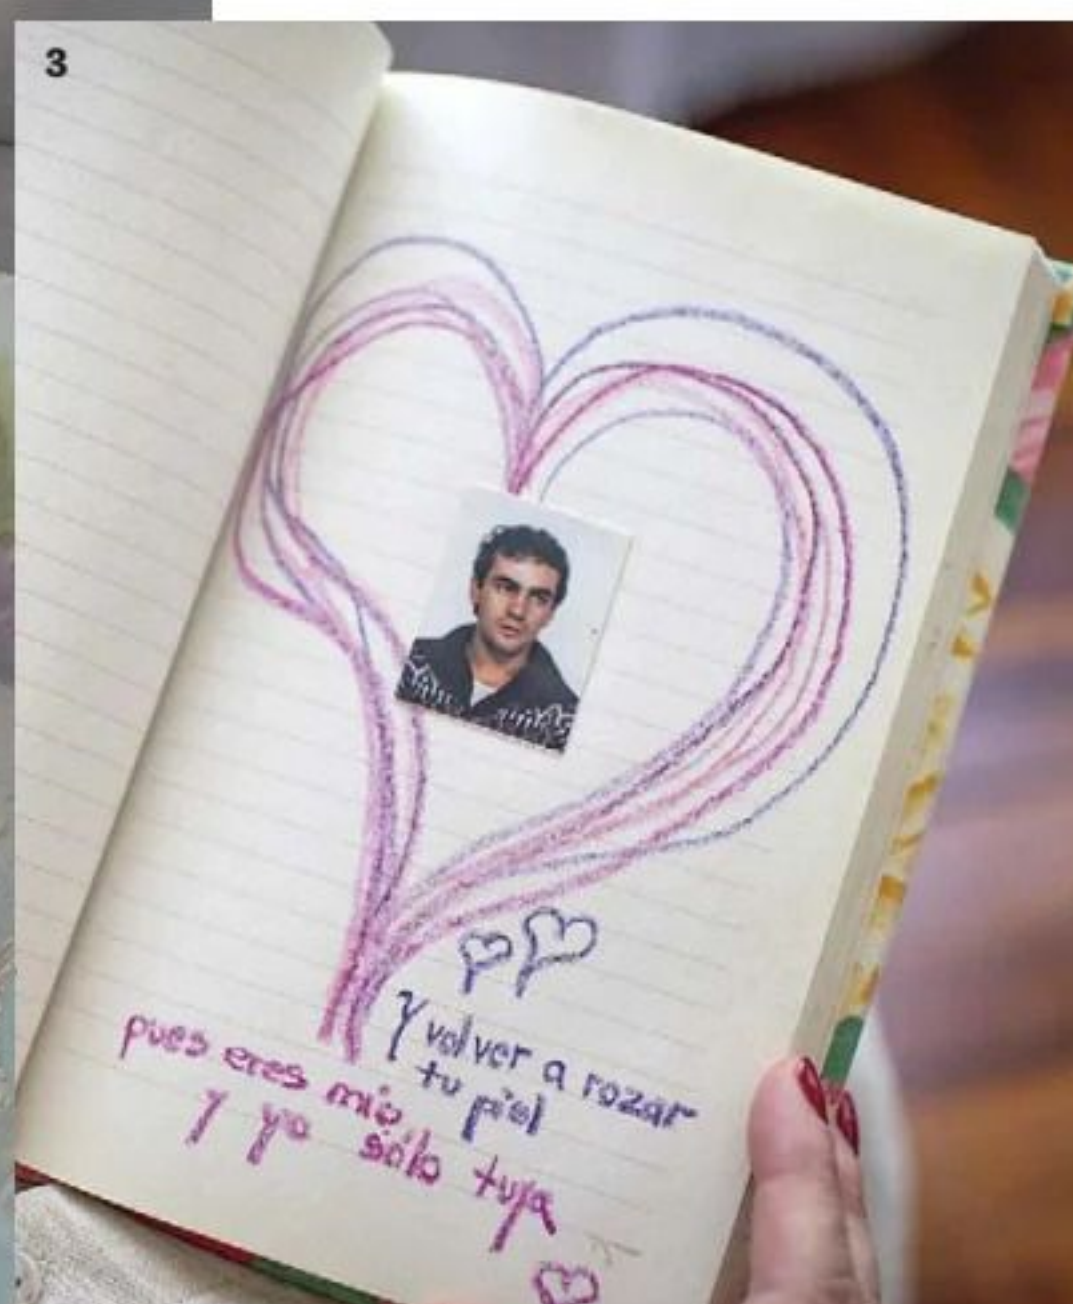 3
Y volver a rozar
tu piel
pues eres mío,
y yo sólo tuya